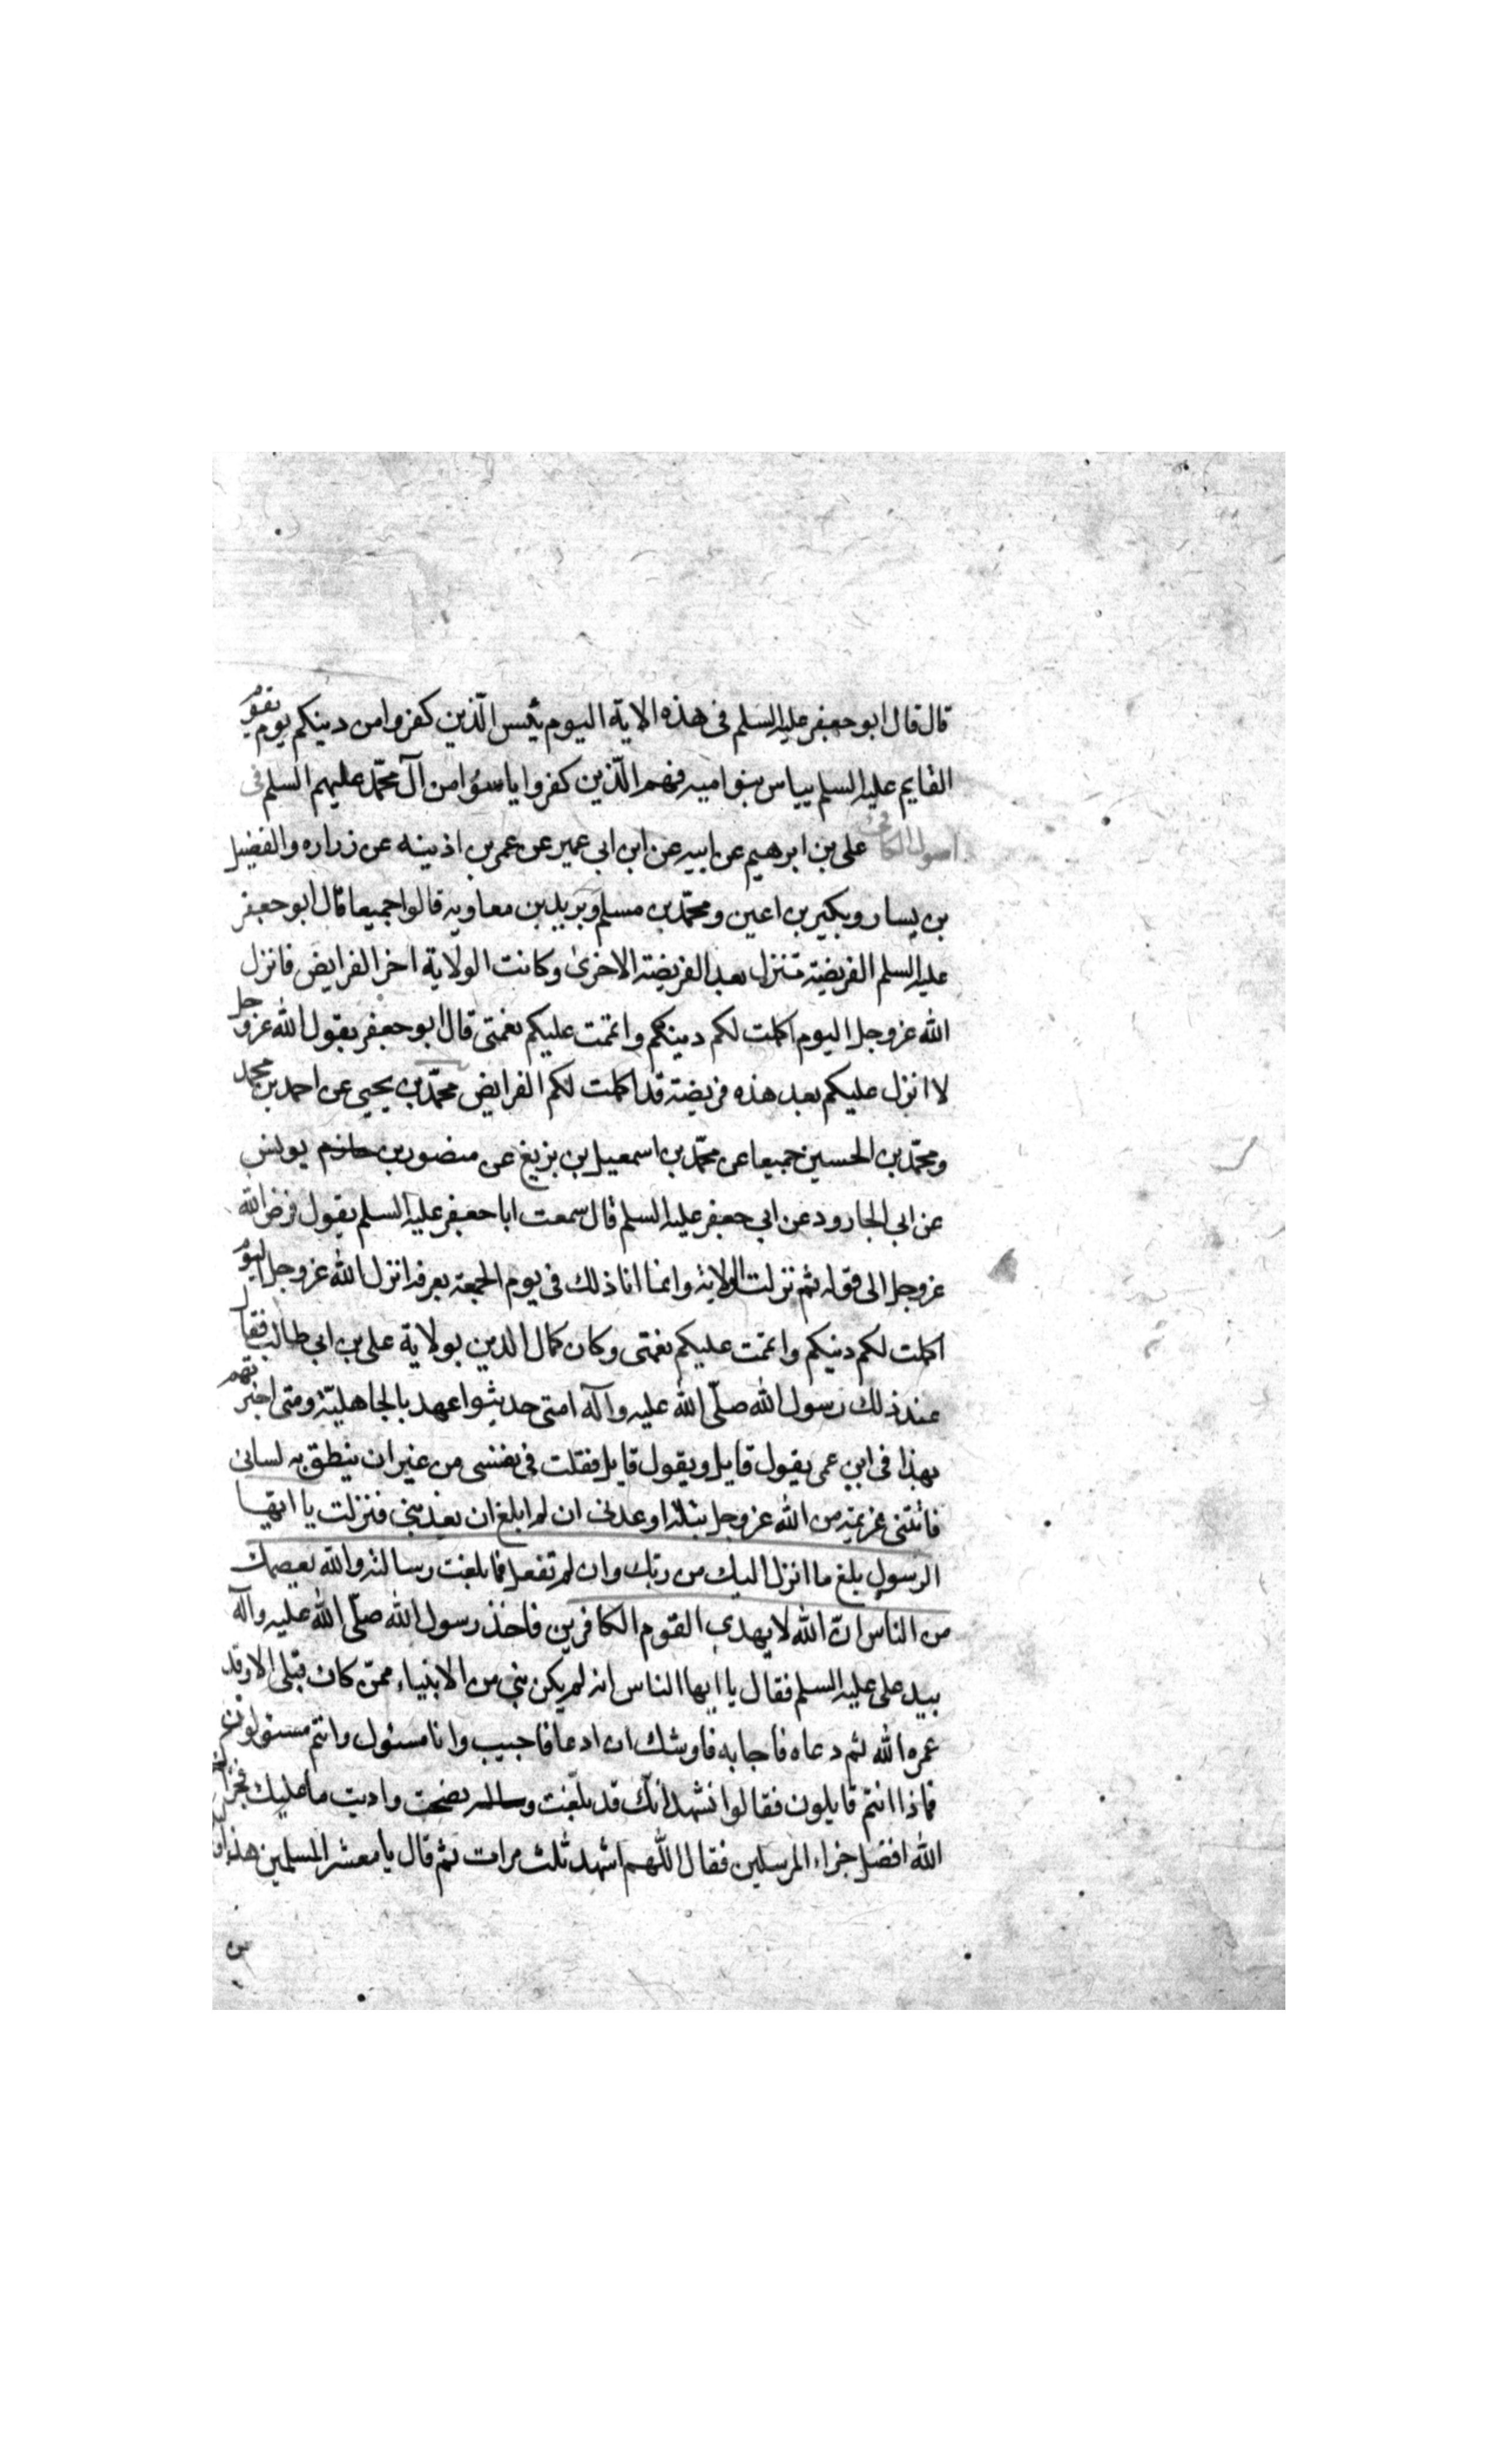 قال قال ابو جعفر عليه السلم فى هذه الاية اليوم يئس الّذين كفروا من دينكم يوم يقوم
القايم عليه السلم يياس بنو اميه فهم الّذين كفروا ياسؤا من آل محمّد عليهم السلم فى
اصول الكافى على بن ابرهيم عن ابيه عن ابن ابى عمير عن عمر بن اذينه عن زراره والفضيل
بن يسار وبكير بن اعين ومحمّد بن مسلم وبريد بن معاويه قالوا جميعا قال ابو جعفر
عليه السلم الفريضة تنزل بعد الفريضة الاخرى وكانت الولاية اخر الفرايض فانزل
الله عز وجل اليوم اكملت لكم دينكم واتممت عليكم نعمتى قال ابو جعفر يقول الله عز وجل
لا انزل عليكم بعد هذه فريضة قد اكملت لكم الفرايض محمّد بن يحيى عن احمد بن محمد
ومحمّد بن الحسين جميعا عن محمّد بن اسمعيل بن بزيغ عن منصور بن حازم يونس
عن ابى الجارود عن ابى جعفر عليه السلم قال سمعت ابا جعفر عليه السلم يقول فرض الله
عز وجل الى قوله ثم نزلت الولاية وانما اتاه ذلك فى يوم الجمعة بعرفة انزل الله عز وجل اليوم
اكملت لكم دينكم واتممت عليكم نعمتى وكان كمال الدين بولاية على بن ابى طالب فقال
عند ذلك رسول الله صلّى الله عليه وآله امتى حديثوا عهد بالجاهليّة ومتى اخبرتهم
بهذا فى ابن عمى يقول قايل ويقول قايل فقلت فى نفسى من غير ان ينطق به لسانى
فاتتنى عزيمة من الله عز وجل بتلة اوعدنى ان لم ابلغ ان يعذبنى فنزلت يا ايها
الرسول بلغ ما انزل اليك من ربّك وان لم تفعل فما بلغت رسالته والله يعصمك
من الناس انّ الله لا يهدى القوم الكافرين فاخذ رسول الله صلّى الله عليه وآله
بيد على عليه السلم فقال يا ايها الناس انه لم يكن نبى من الانبياء ممّن كان قبلى الا وقد
عمره الله ثم دعاه فاجابه فاوشك ان ادعا فاجيب وانا مسئول وانتم مسئولون
فماذا انتم قايلون فقالوا نشهد انّك قد بلّغت ونصحت واديت ما عليك فجزاك
الله افضل جزاء المرسلين فقال اللّهم اشهد ثلث مرات ثم قال يا معشر المسلمين هذا